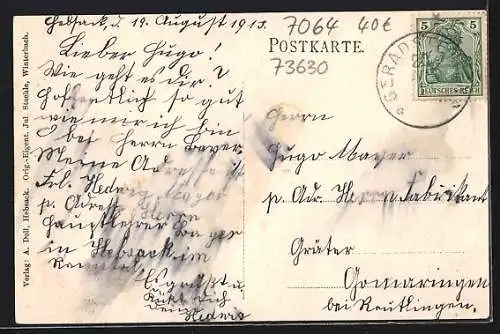 Hebsack, d. 19. August 1913.
Lieber Hugo!
Wie geht es dir?
Hoffentlich so gut
wie mir ich bin
bei Herrn
Meine Adresse ist
Frl. Hedwig
p. Adress Herrn
Hauptlehrer
in Hebsack im
Remstal
Es grüßt u.
küßt dich
deine
Hedwig
7064 40€
POSTKARTE.
73630
Herrn
Hugo Mayer
p. Adr. Herrn Fabrikant
Gräter
Gomaringen
bei Reutlingen.
5 5
DEUTSCHES REICH
Verlag: A. Doll, Hebsack. Orig.-Eigent. Jul. Stanhle, Winterbach.